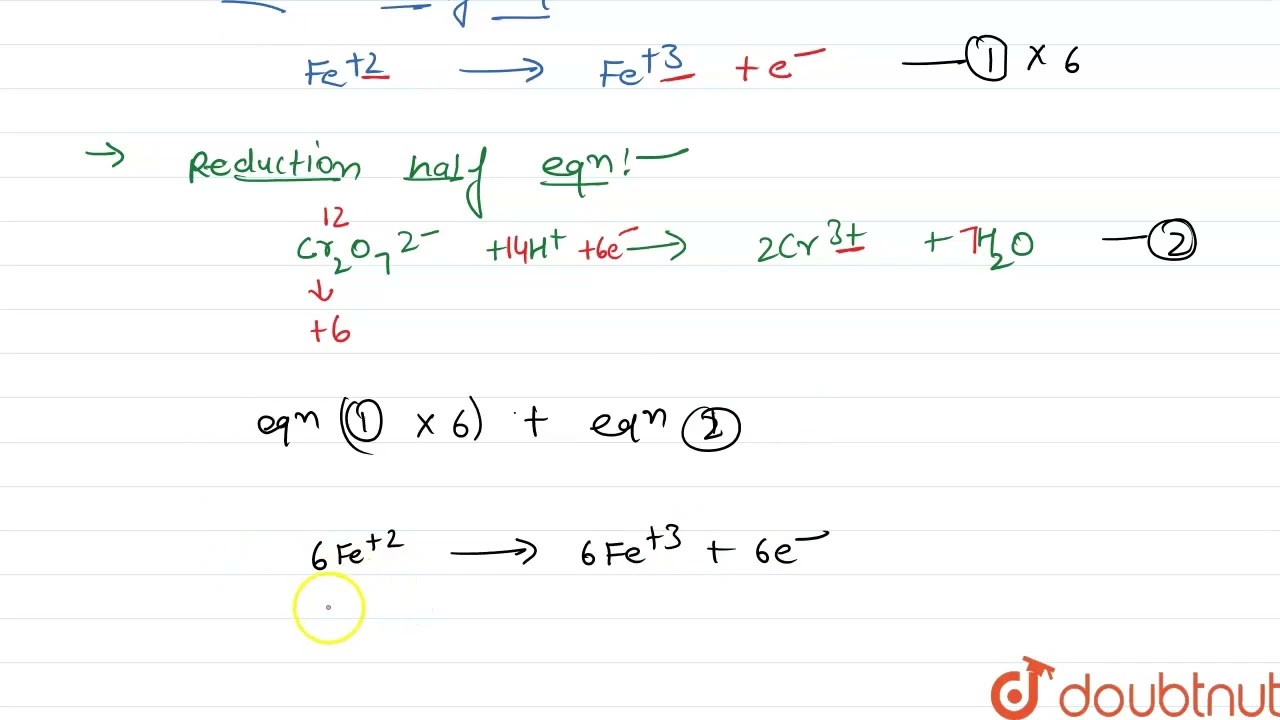 Fe⁺² ⟶ Fe⁺³ + e⁻ —① × 6
→ Reduction half eqn!—
12
Cr₂O₇²⁻ +14H⁺ +6e⁻ ⟶ 2Cr³⁺ + 7H₂O —②
↓
+6
eqn (① × 6) + eqn ②
6Fe⁺² ⟶ 6Fe⁺³ + 6e⁻
doubtnut